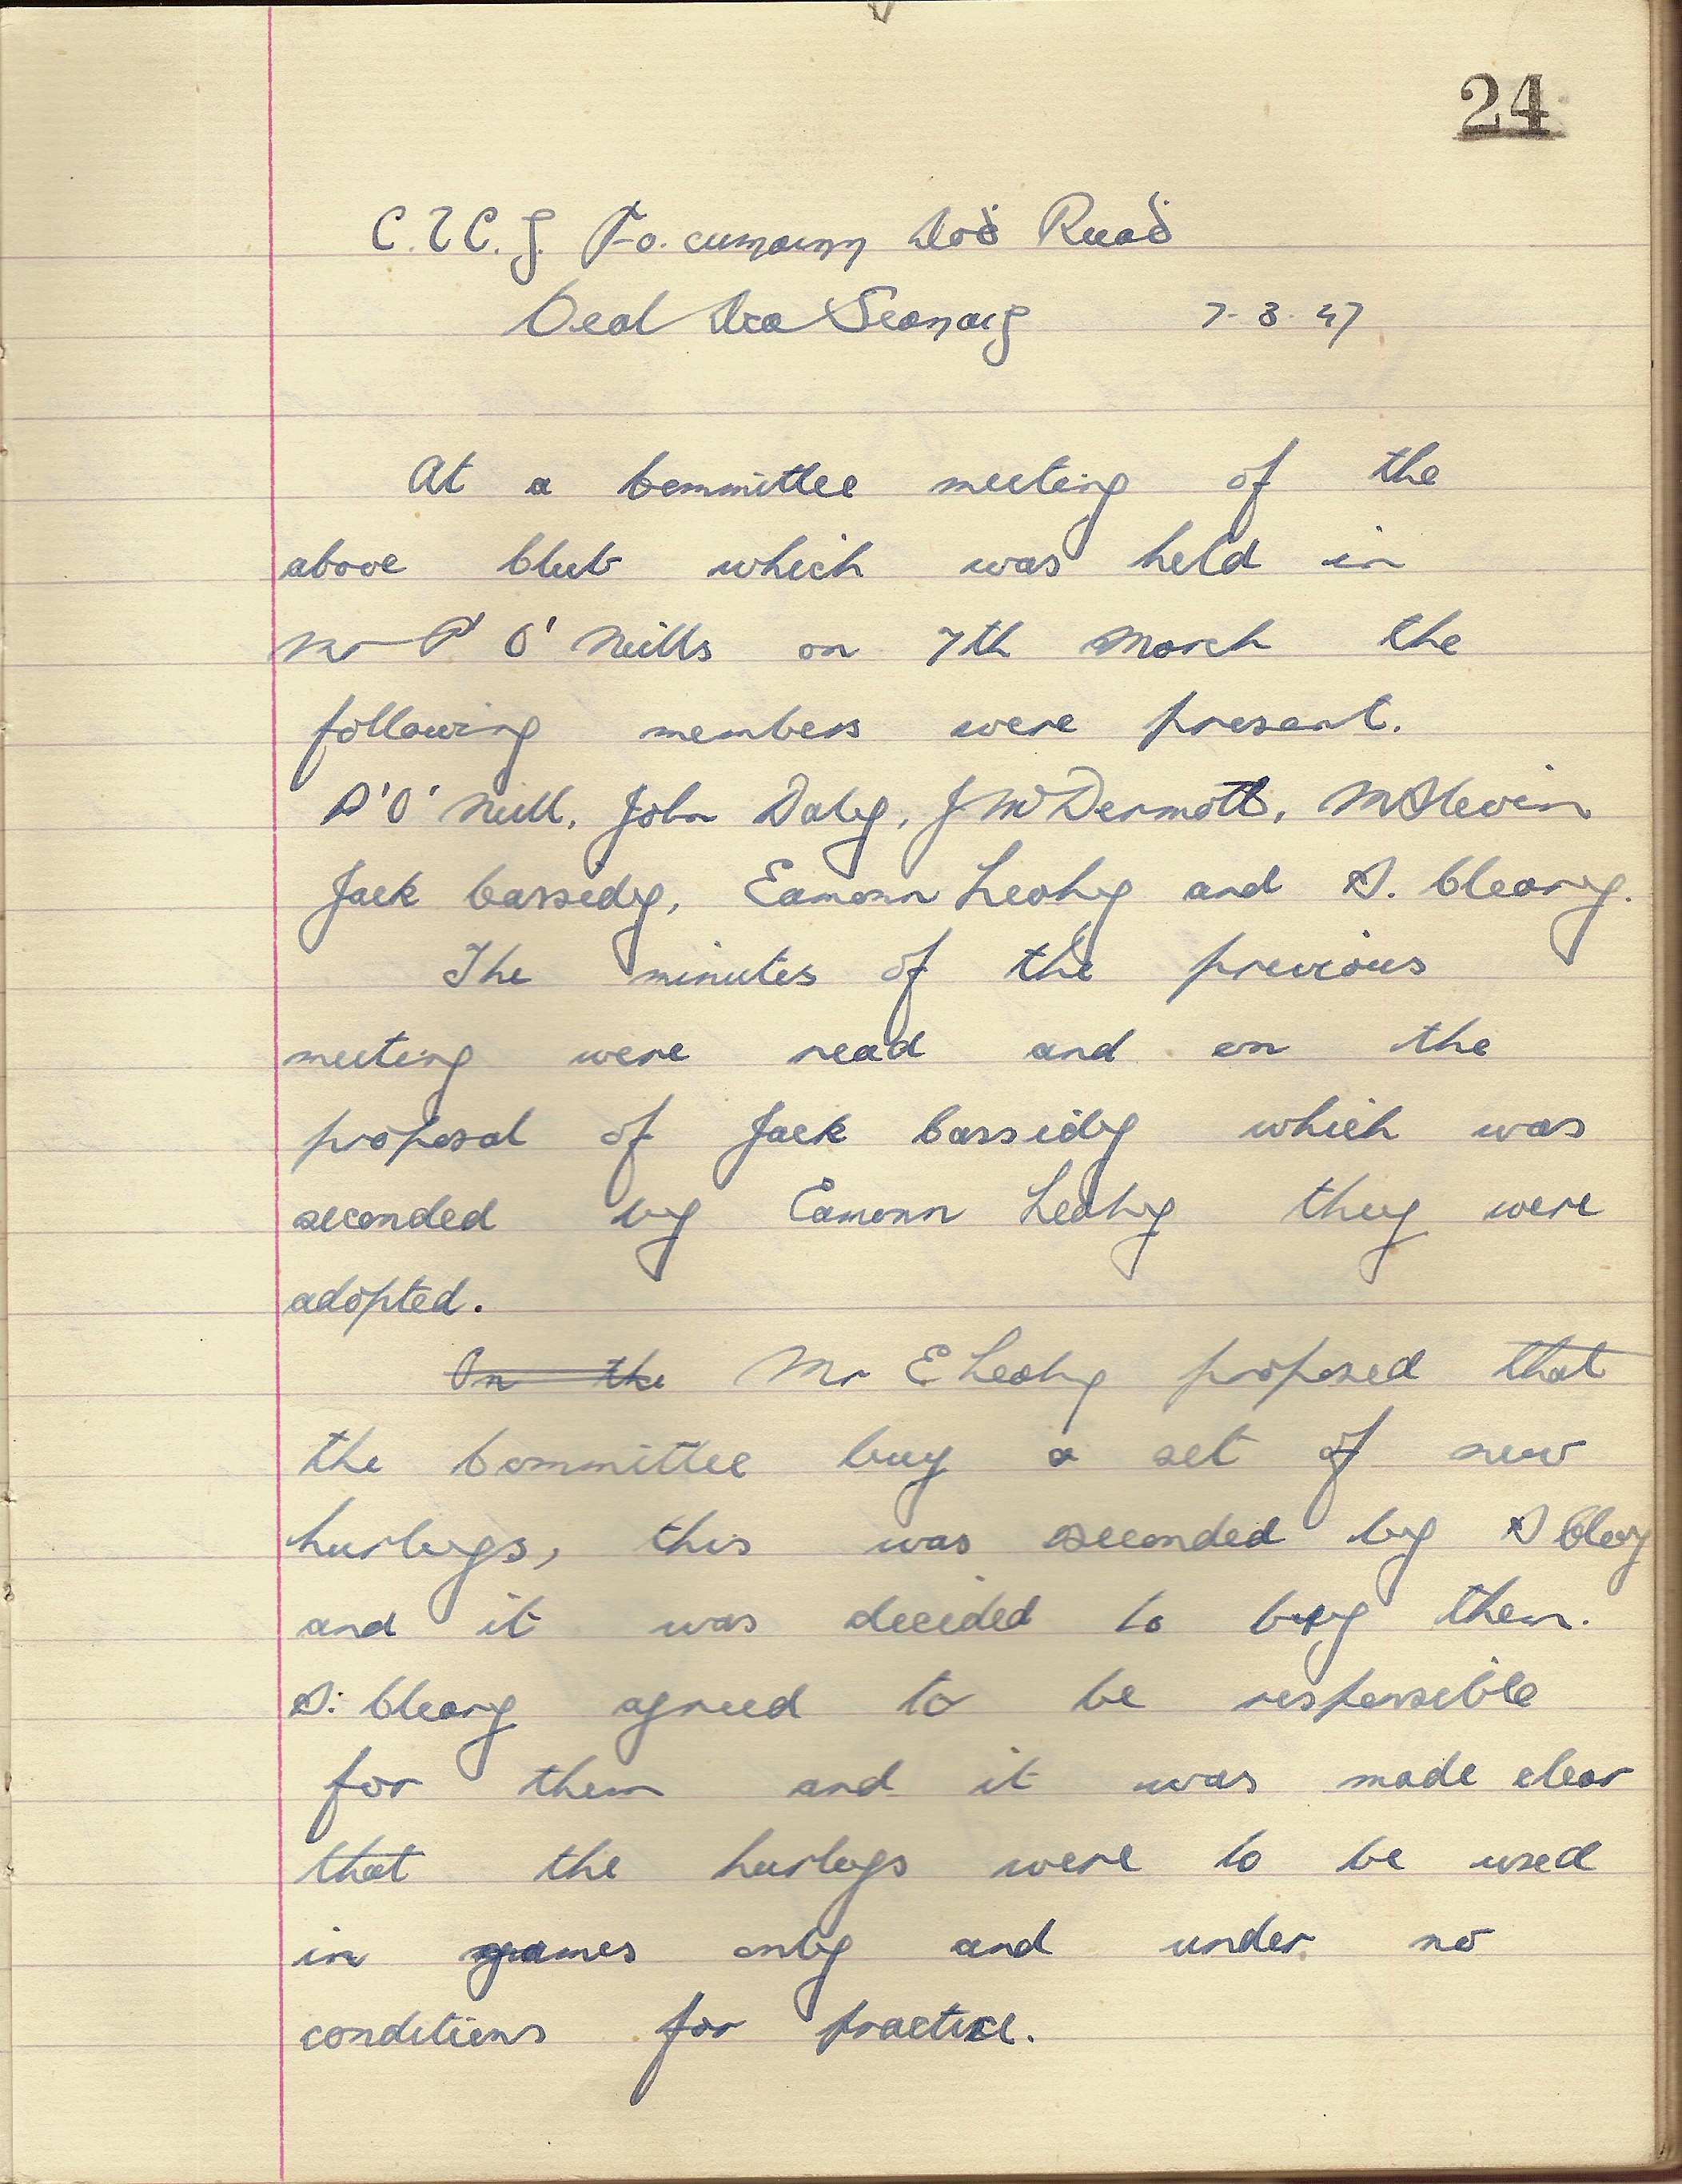 24
C.L.C.G. Fo-cumainn Aoḋ Ruaḋ
Beal Áṫa Seanaiġ 7-3-47
At a Committee meeting of the
above Club which was held in
Mr P O'Neills on 7th March the
following members were present.
P'O'Neill, John Daly, J McDermott, M Slevin
Jack Cassidy, Eamonn Leahy and S. Cleary.
The minutes of the previous
meeting were read and on the
proposal of Jack Cassidy which was
seconded by Eamonn Leahy they were
adopted.
On the Mr E Leahy proposed that
the Committee buy a set of new
hurleys, this was seconded by S Cleary
and it was decided to buy them.
S. Cleary agreed to be responsible
for them and it was made clear
that the hurleys were to be used
in games only and under no
conditions for practice.